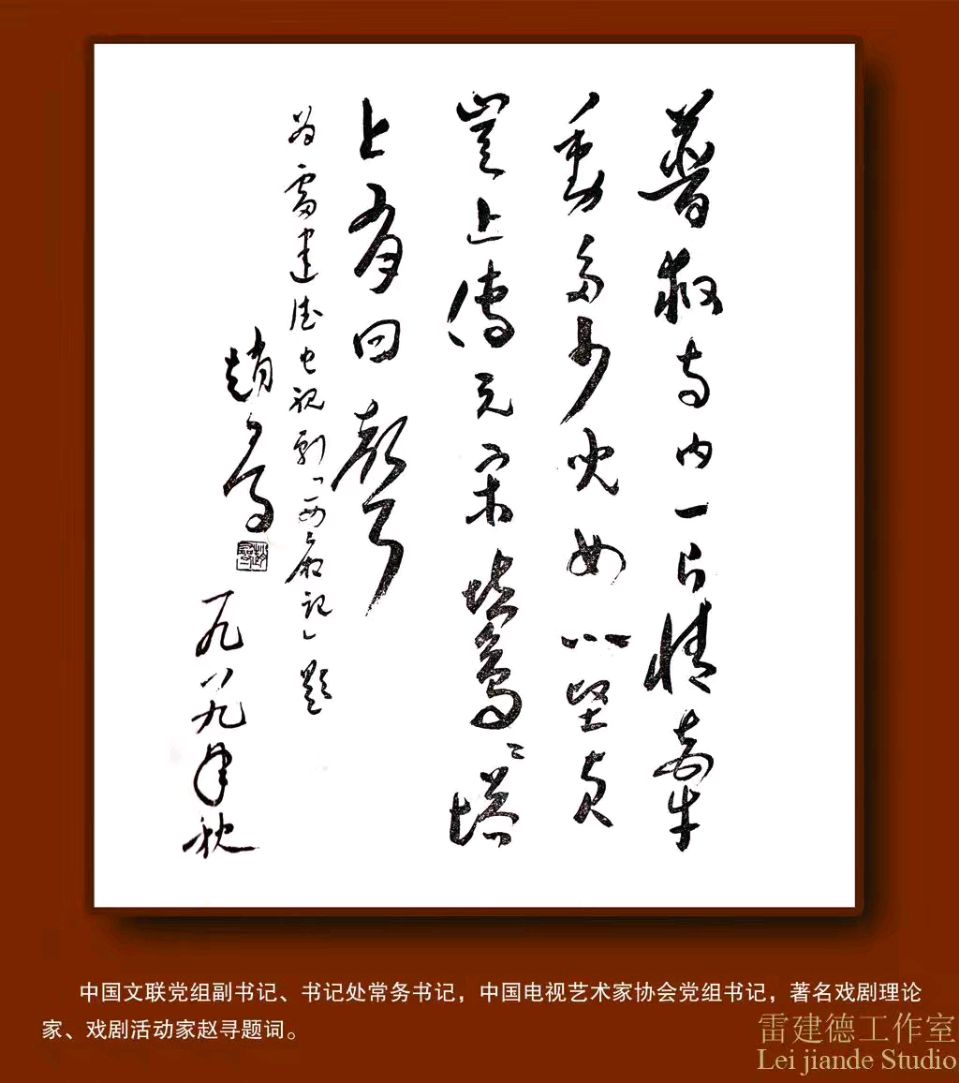 普救寺内一片情牵
動多少兒女心堅貞
豈止傳元宋鶯々塔
上有回聲
为雷建德电视剧「西厢记」题
趙尋
一九八九年秋
中国文联党组副书记、书记处常务书记，中国电视艺术家协会党组书记，著名戏剧理论
家、戏剧活动家赵寻题词。
雷建德工作室
Lei jiande Studio